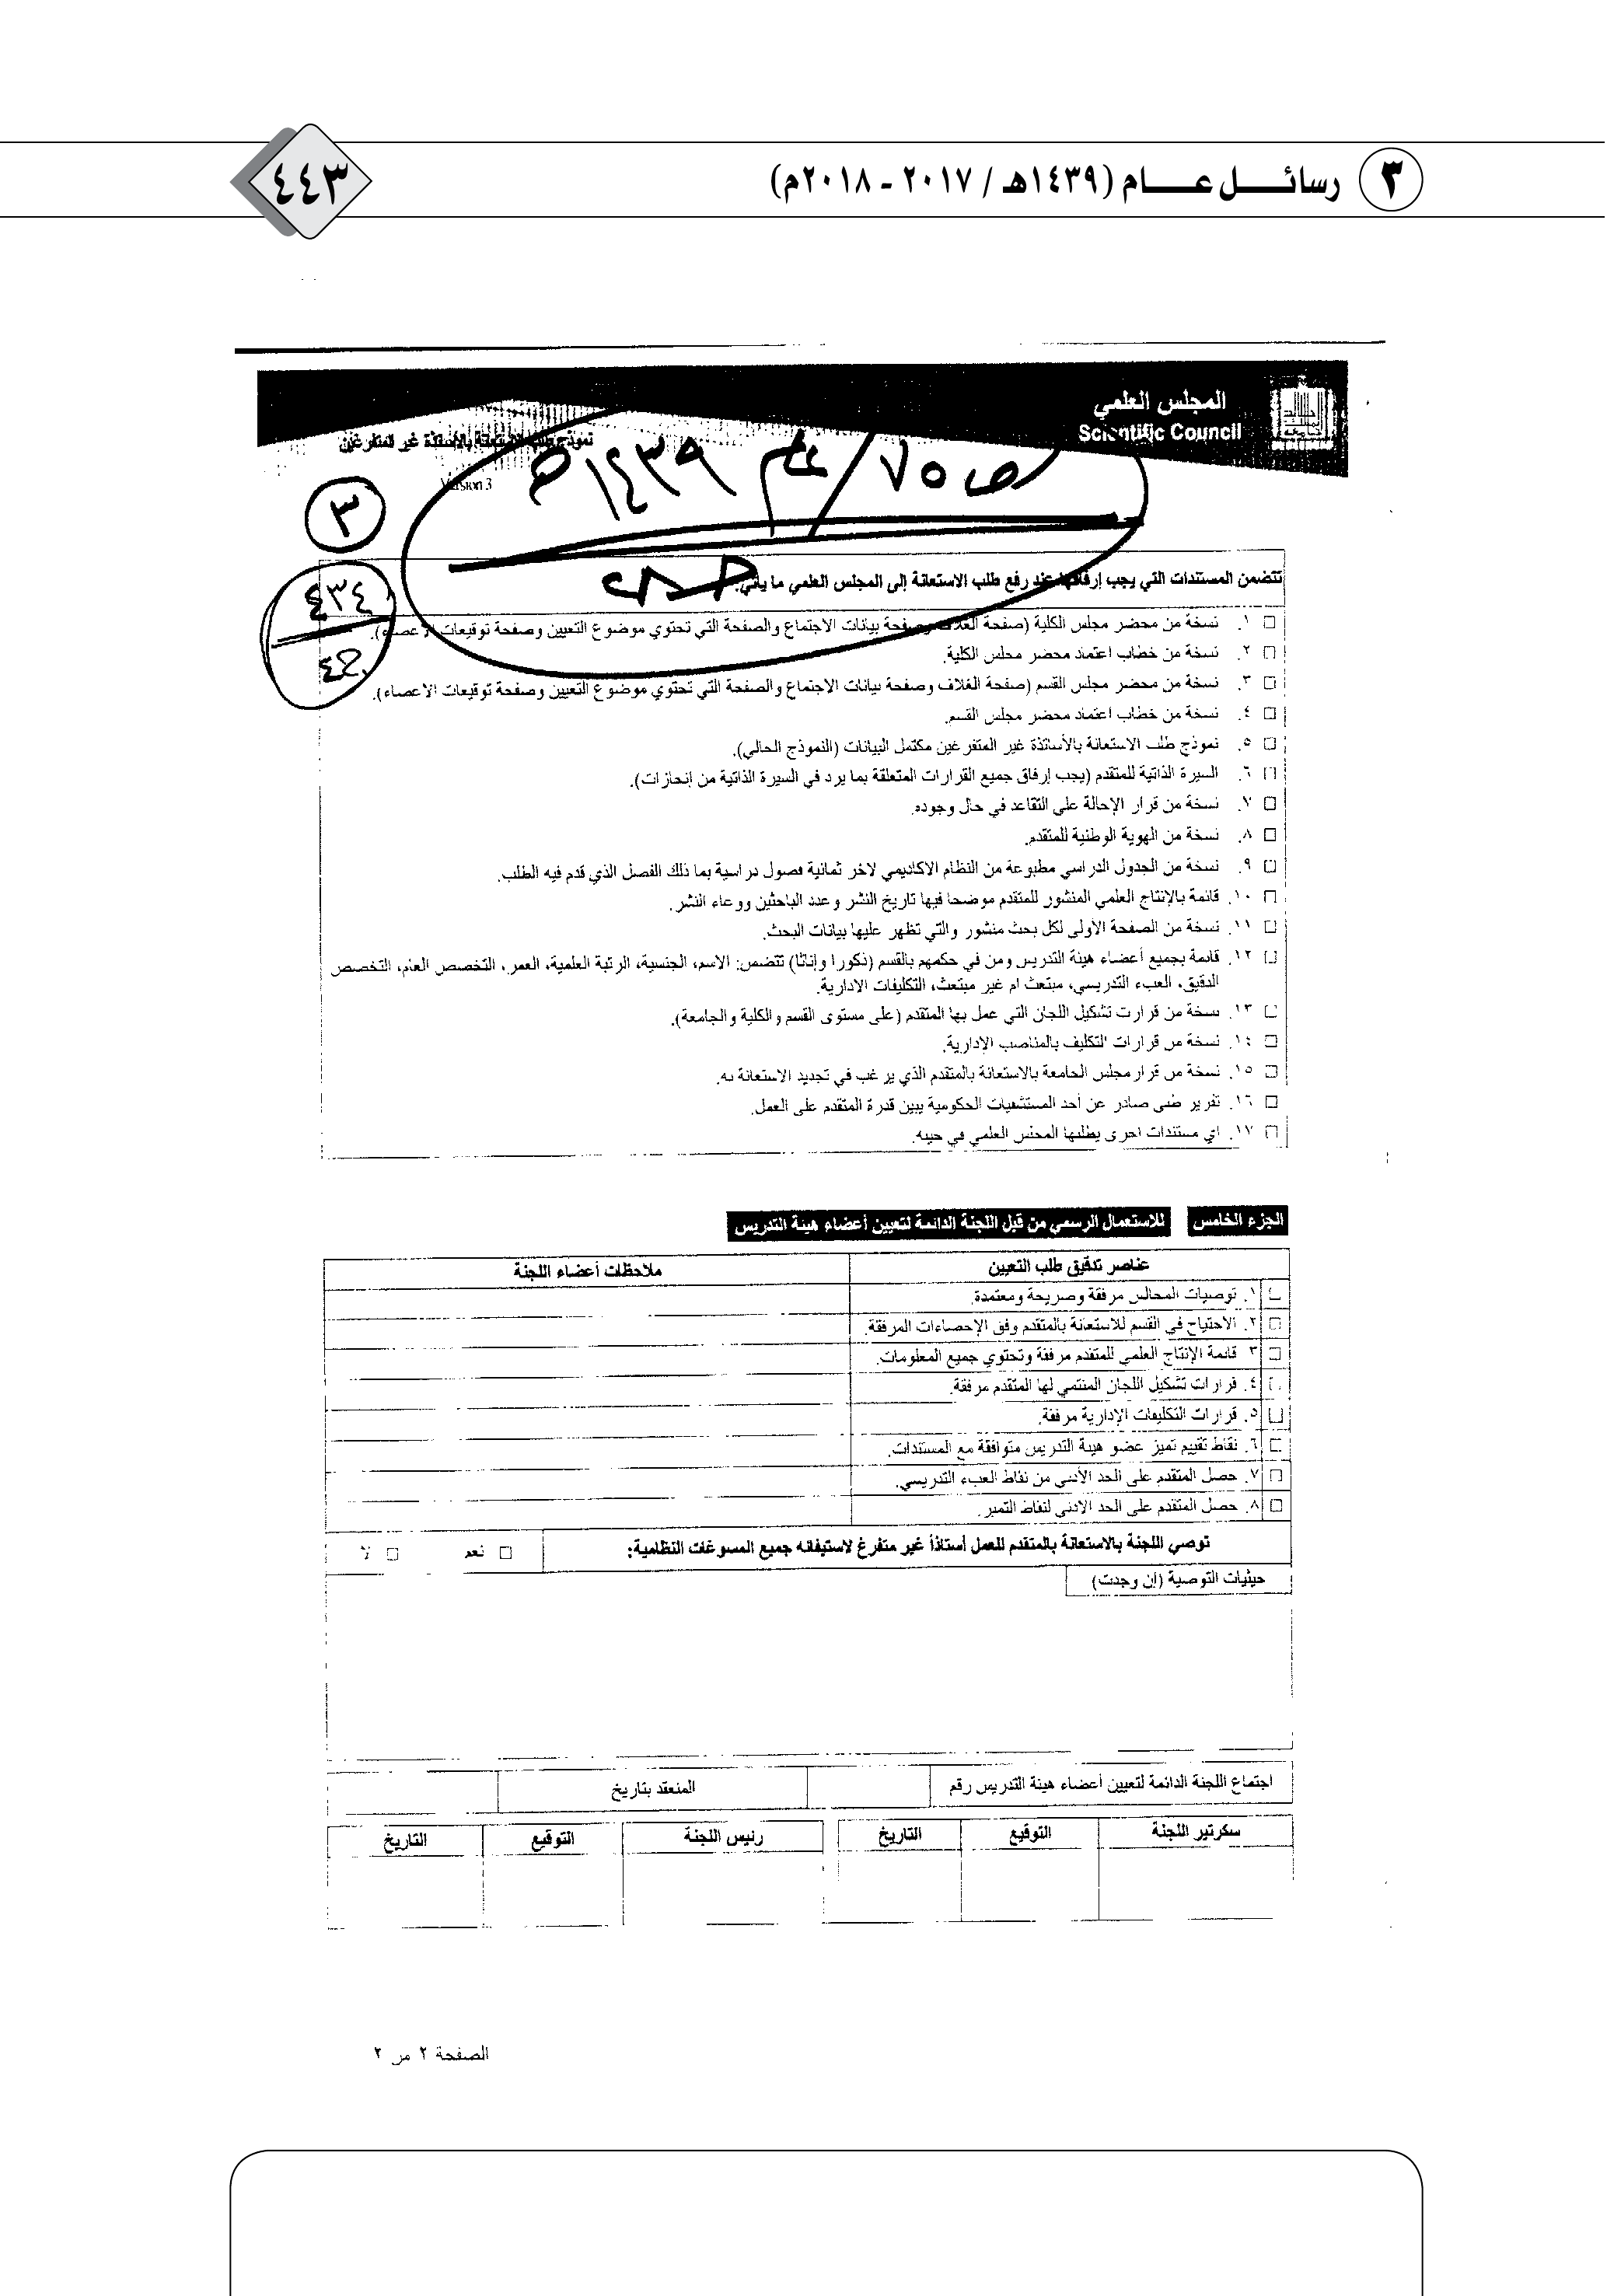 ٣ رسائـــــل عـــــــام (١٤٣٩هـ / ٢٠١٧ - ٢٠١٨م)
٤٤٣
المجلس العلمي
Scientific Council
نموذج طلب الاستعانة بالأساتذة غير المتفرغين
Version 3
ص ٧٥ / عام ١٤٣٩هـ
٣
٤٣٤
تتضمن المستندات التي يجب إرفاقها عند رفع طلب الاستعانة إلى المجلس العلمي ما يأتي:
١. نسخة من محضر مجلس الكلية (صفحة الغلاف وصفحة بيانات الاجتماع والصفحة التي تحتوي موضوع التعيين وصفحة توقيعات الاعضاء).
٢. نسخة من خطاب اعتماد محضر مجلس الكلية.
٣. نسخة من محضر مجلس القسم (صفحة الغلاف وصفحة بيانات الاجتماع والصفحة التي تحتوي موضوع التعيين وصفحة توقيعات الاعضاء).
٤. نسخة من خطاب اعتماد محضر مجلس القسم.
٥. نموذج طلب الاستعانة بالأساتذة غير المتفرغين مكتمل البيانات (النموذج الحالي).
٦. السيرة الذاتية للمتقدم (يجب إرفاق جميع القرارات المتعلقة بما يرد في السيرة الذاتية من إنجازات).
٧. نسخة من قرار الإحالة على التقاعد في حال وجوده.
٨. نسخة من الهوية الوطنية للمتقدم.
٩. نسخة من الجدول الدراسي مطبوعة من النظام الاكاديمي لاخر ثمانية فصول دراسية بما ذلك الفصل الذي قدم فيه الطلب.
١٠. قائمة بالإنتاج العلمي المنشور للمتقدم موضحا فيها تاريخ النشر وعدد الباحثين ووعاء النشر.
١١. نسخة من الصفحة الأولى لكل بحث منشور والتي تظهر عليها بيانات البحث.
١٢. قائمة بجميع أعضاء هيئة التدريس ومن في حكمهم بالقسم (ذكورا وإناثا) تتضمن: الاسم، الجنسية، الرتبة العلمية، العمر، التخصص العام، التخصص
الدقيق، العبء التدريسي، مبتعث ام غير مبتعث، التكليفات الادارية.
١٣. نسخة من قرارت تشكيل اللجان التي عمل بها المتقدم (على مستوى القسم والكلية والجامعة).
١٤. نسخة من قرارات التكليف بالمناصب الإدارية.
١٥. نسخة من قرار مجلس الجامعة بالاستعانة بالمتقدم الذي يرغب في تجديد الاستعانة به.
١٦. تقرير طبي صادر عن أحد المستشفيات الحكومية يبين قدرة المتقدم على العمل.
١٧. اي مستندات اخرى يطلبها المجلس العلمي في حينه.
الجزء الخامس للاستعمال الرسمي من قبل اللجنة الدائمة لتعيين أعضاء هيئة التدريس
عناصر تدقيق طلب التعيين ملاحظات أعضاء اللجنة
١. توصيات المجالس مرفقة وصريحة ومعتمدة.
٢. الاحتياج في القسم للاستعانة بالمتقدم وفق الإحصاءات المرفقة.
٣ قائمة الإنتاج العلمي للمتقدم مرفقة وتحتوي جميع المعلومات.
٤. قرارات تشكيل اللجان المنتمي لها المتقدم مرفقة.
٥. قرارات التكليفات الإدارية مرفقة.
٦. نقاط تقييم تميز عضو هيئة التدريس متوافقة مع المستندات.
٧. حصل المتقدم على الحد الأدنى من نقاط العبء التدريسي.
٨. حصل المتقدم على الحد الادنى لنقاط التميز.
توصي اللجنة بالاستعانة بالمتقدم للعمل أستاذاً غير متفرغ لاستيفائه جميع المسوغات النظامية: نعم لا
حيثيات التوصية (ان وجدت)
اجتماع اللجنة الدائمة لتعيين أعضاء هيئة التدريس رقم المنعقد بتاريخ
سكرتير اللجنة التوقيع التاريخ رئيس اللجنة التوقيع التاريخ
الصفحة ٢ من ٢